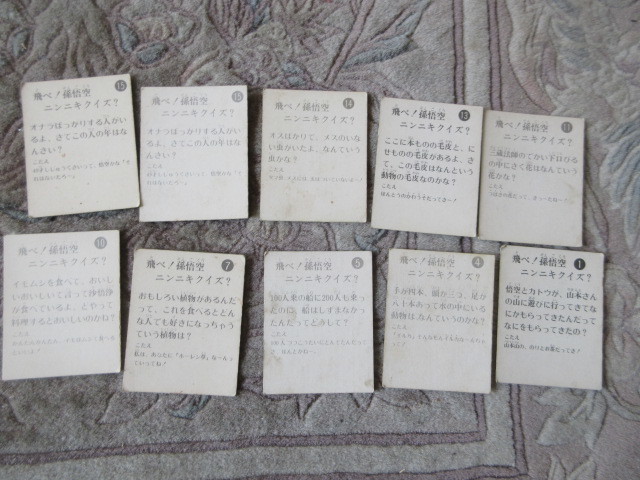 15
飛べ！孫悟空
ニンニキクイズ？
オナラばっかりする人がい
るよ。さてこの人の年はな
んさい？
こたえ
15
飛べ！孫悟空
ニンニキクイズ？
オナラばっかりする人がい
るよ。さてこの人の年はな
んさい？
こたえ
14
飛べ！孫悟空
ニンニキクイズ？
オスばかりで、メスのいな
い虫がいたよ。なんていう
虫かな？
こたえ
13
飛べ！孫悟空
ニンニキクイズ？
ここに本ものの毛皮と、に
せものの毛皮があるよ。さ
て、この毛皮はなんという
動物の毛皮なのかな？
こたえ
ほんとうのかわうそだってさ〜！
11
飛べ！孫悟空
ニンニキクイズ？
三蔵法師のでかい下口びる
の中にさく花はなんていう
花かな？
こたえ
10
飛べ！孫悟空
ニンニキクイズ？
イモムシを食べて、おいし
いおいしいって言う沙悟浄
が食べているよ。どうやって
料理するとおいしいのかな？
こたえ
7
飛べ！孫悟空
ニンニキクイズ？
おもしろい植物があるんだ
って。これを食べるとどん
な人でも好きになっちゃう
ていう植物は？
こたえ
私は、あなたに「ホーレン草」な〜んっ
ていってね！
5
飛べ！孫悟空
ニンニキクイズ？
100人乗の船に200人も乗っ
たのに、船はしずまなかっ
たんだってさ。どして？
こたえ
4
飛べ！孫悟空
ニンニキクイズ？
手が四本、頭が三つ、足が
八十本あって水の中にいる
動物は、なんていうのかな？
こたえ
1
飛べ！孫悟空
ニンニキクイズ？
悟空とカトウが、山本さん
の山に遊びに行ってきてな
にかもらってきたんだって
なにをもらってきたの？
こたえ
山本山の、のりとお茶だってさ？